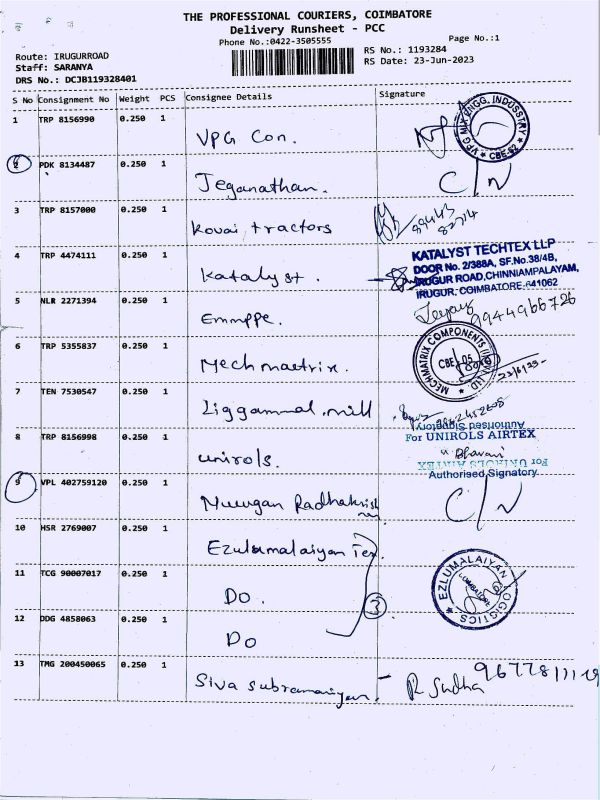 THE PROFESSIONAL COURIERS, COIMBATORE
Delivery Runsheet - PCC
Phone No.:0422-3505555
Page No.:1
Route: IRUGURROAD
Staff: SARANYA
DRS No.: DCJB119328401
RS No.: 1193284
RS Date: 23-Jun-2023
S No Consignment No Weight PCS Consignee Details Signature
1 TRP 8156990 0.250 1 VPG Con.
VPG MIX ENGG. INDUSSTRY
★ CBE-62 ★
2 PDK 8134487 0.250 1 Jeganathan. C/N
3 TRP 8157000 0.250 1 Kovai tractors
89443
82714
4 TRP 4474111 0.250 1 Katalyst.
KATALYST TECHTEX LLP
DOOR No. 2/388A, SF.No.38/4B,
IRUGUR ROAD,CHINNIAMPALAYAM,
IRUGUR, COIMBATORE.641062
5 NLR 2271394 0.250 1 Emmppe.
9944966726
6 TRP 5355837 0.250 1 Mechmaetrix.
MECHMATRIX COMPONENTS (INDIA) LTD
CBE - 05
23/6/23-
7 TEN 7530547 0.250 1 Liggammal.mill
8 TRP 8156998 0.250 1 unirols.
Authorised Signatory
For UNIROLS AIRTEX
Bhavani
For UNIROLS AIRTEX
Authorised Signatory
9 VPL 402759120 0.250 1 Murugan Radhakrish
nan
C/N
10 HSR 2769007 0.250 1 Ezulumalaiyan Tex.
11 TCG 90007017 0.250 1 Do.
3
EZLUMALAIYAN LOGISTICS
COIMBATORE
12 DDG 4858063 0.250 1 Do
13 TMG 200450065 0.250 1 Siva subramaniyan. - R Sudha